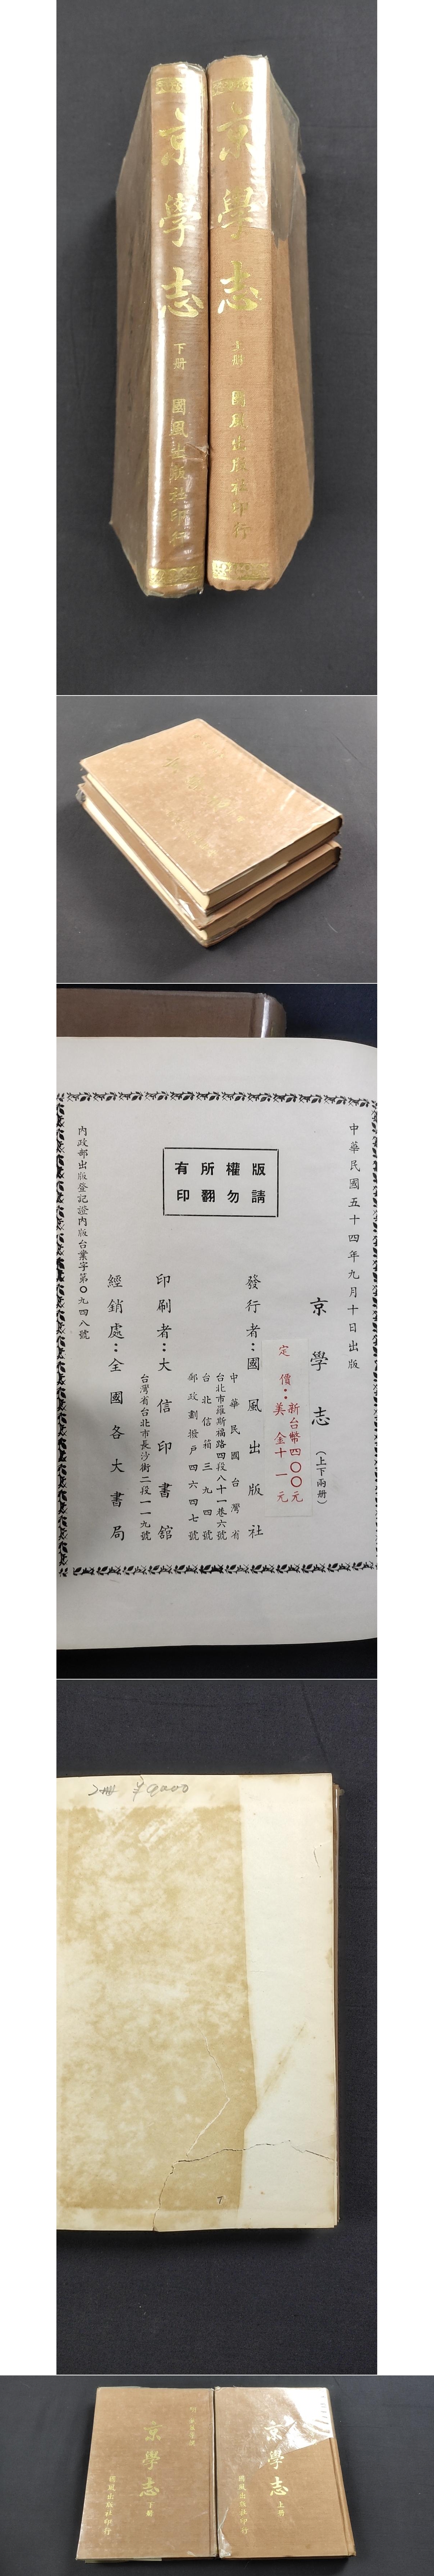 京學志 上册 國風出版社印行
京學志 下册 國風出版社印行
中華民國五十四年九月十日出版
京學志（上下兩册）
定價：新台幣四〇〇元
美金十一元
版權所有
請勿翻印
發行者：國風出版社
中華民國台灣省
台北市羅斯福路四段八十一巷六號
台北信箱三九四號
郵政劃撥戶四六四七號
印刷者：大信印書館
台灣省台北市長沙街二段一一九號
經銷處：全國各大書局
內政部出版登記證內版台業字第〇九四八號
¥9000
京學志 上册
國風出版社印行
京學志 下册
國風出版社印行